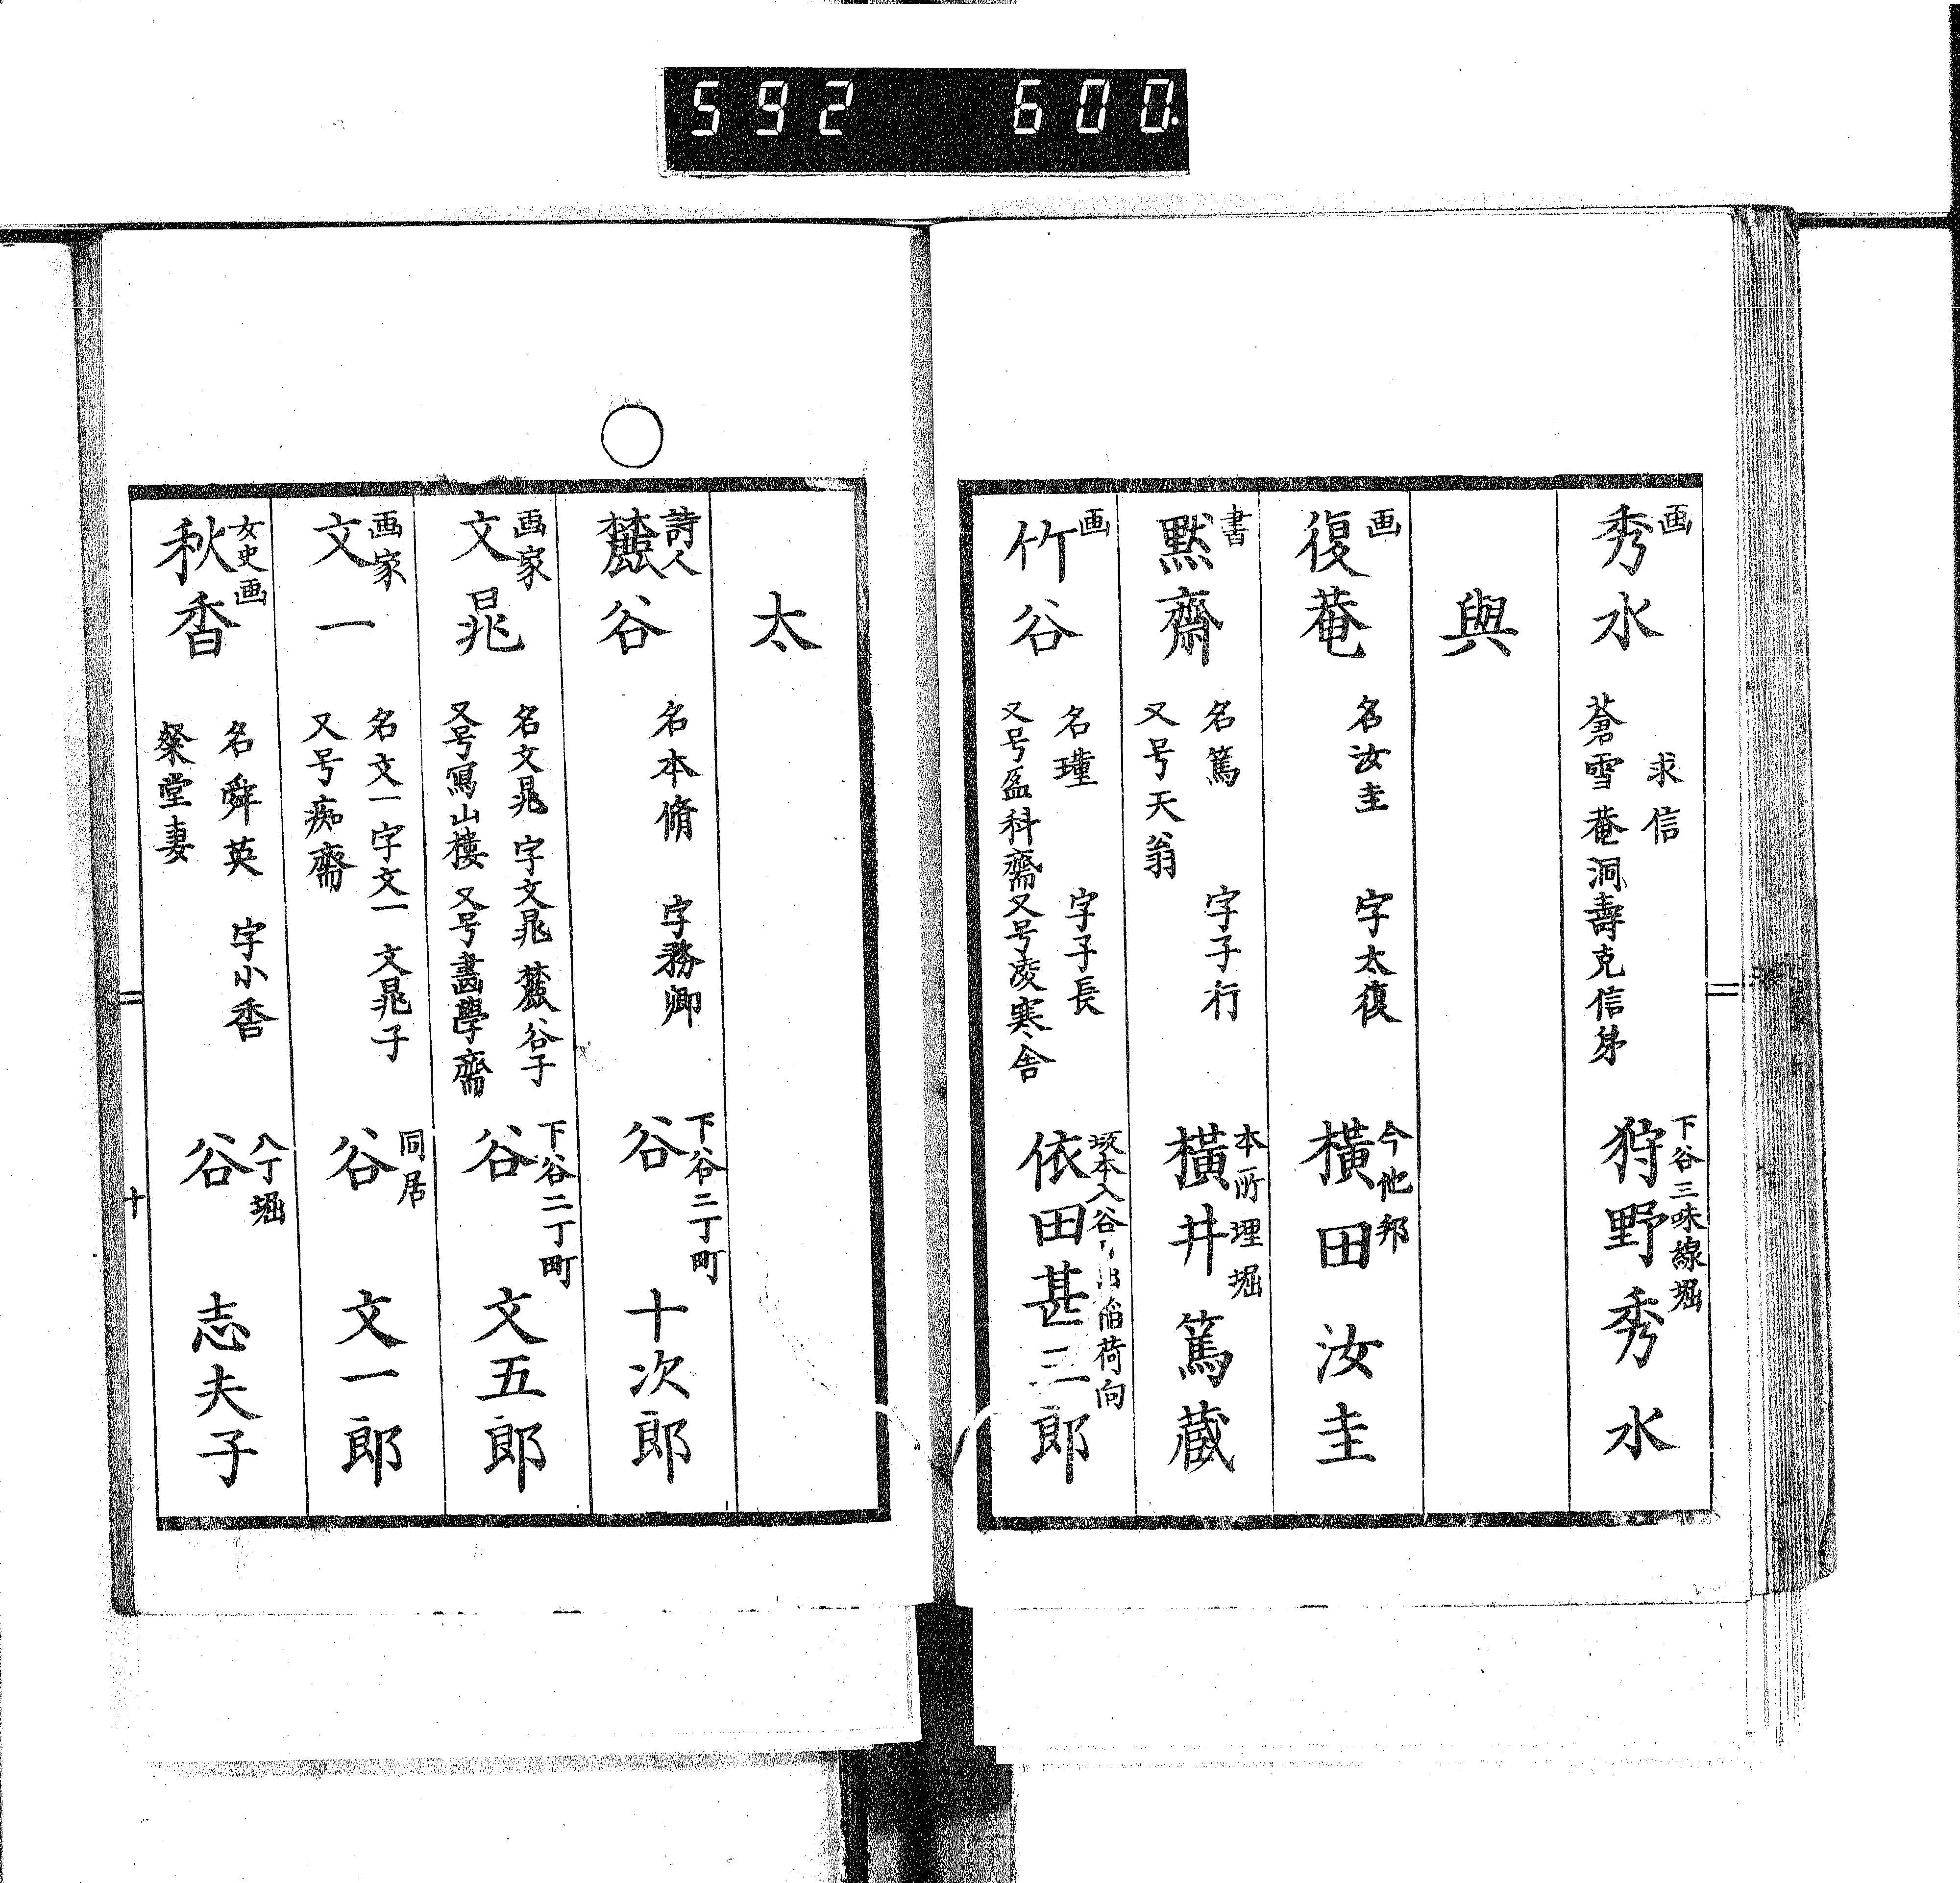 592 600.
画 秀水 求信
蒼雪菴洞壽克信弟 下谷三味線堀 狩野秀水
與
画 復菴 名汝圭 字太復 今他邦 横田汝圭
書 黙齋 名篤 字子行
又号天翁 本所埋堀 横井篤蔵
画 竹谷 名瑾 字子長
又号盈科齋又号凌寒舎 坂本入谷 稲荷向 依田甚三郎
太
詩人 麓谷 名本脩 字務卿 下谷二丁町 谷十次郎
画家 文晁 名文晁 字文晁 麓谷子
又号寫山樓 又号畫學齋 下谷二丁町 谷文五郎
画家 文一 名文一字文一 文晁子
又号痴齋 同居 谷文一郎
女史画 秋香 名舜英 字小香
粲堂妻 八丁堀 谷志夫子
十